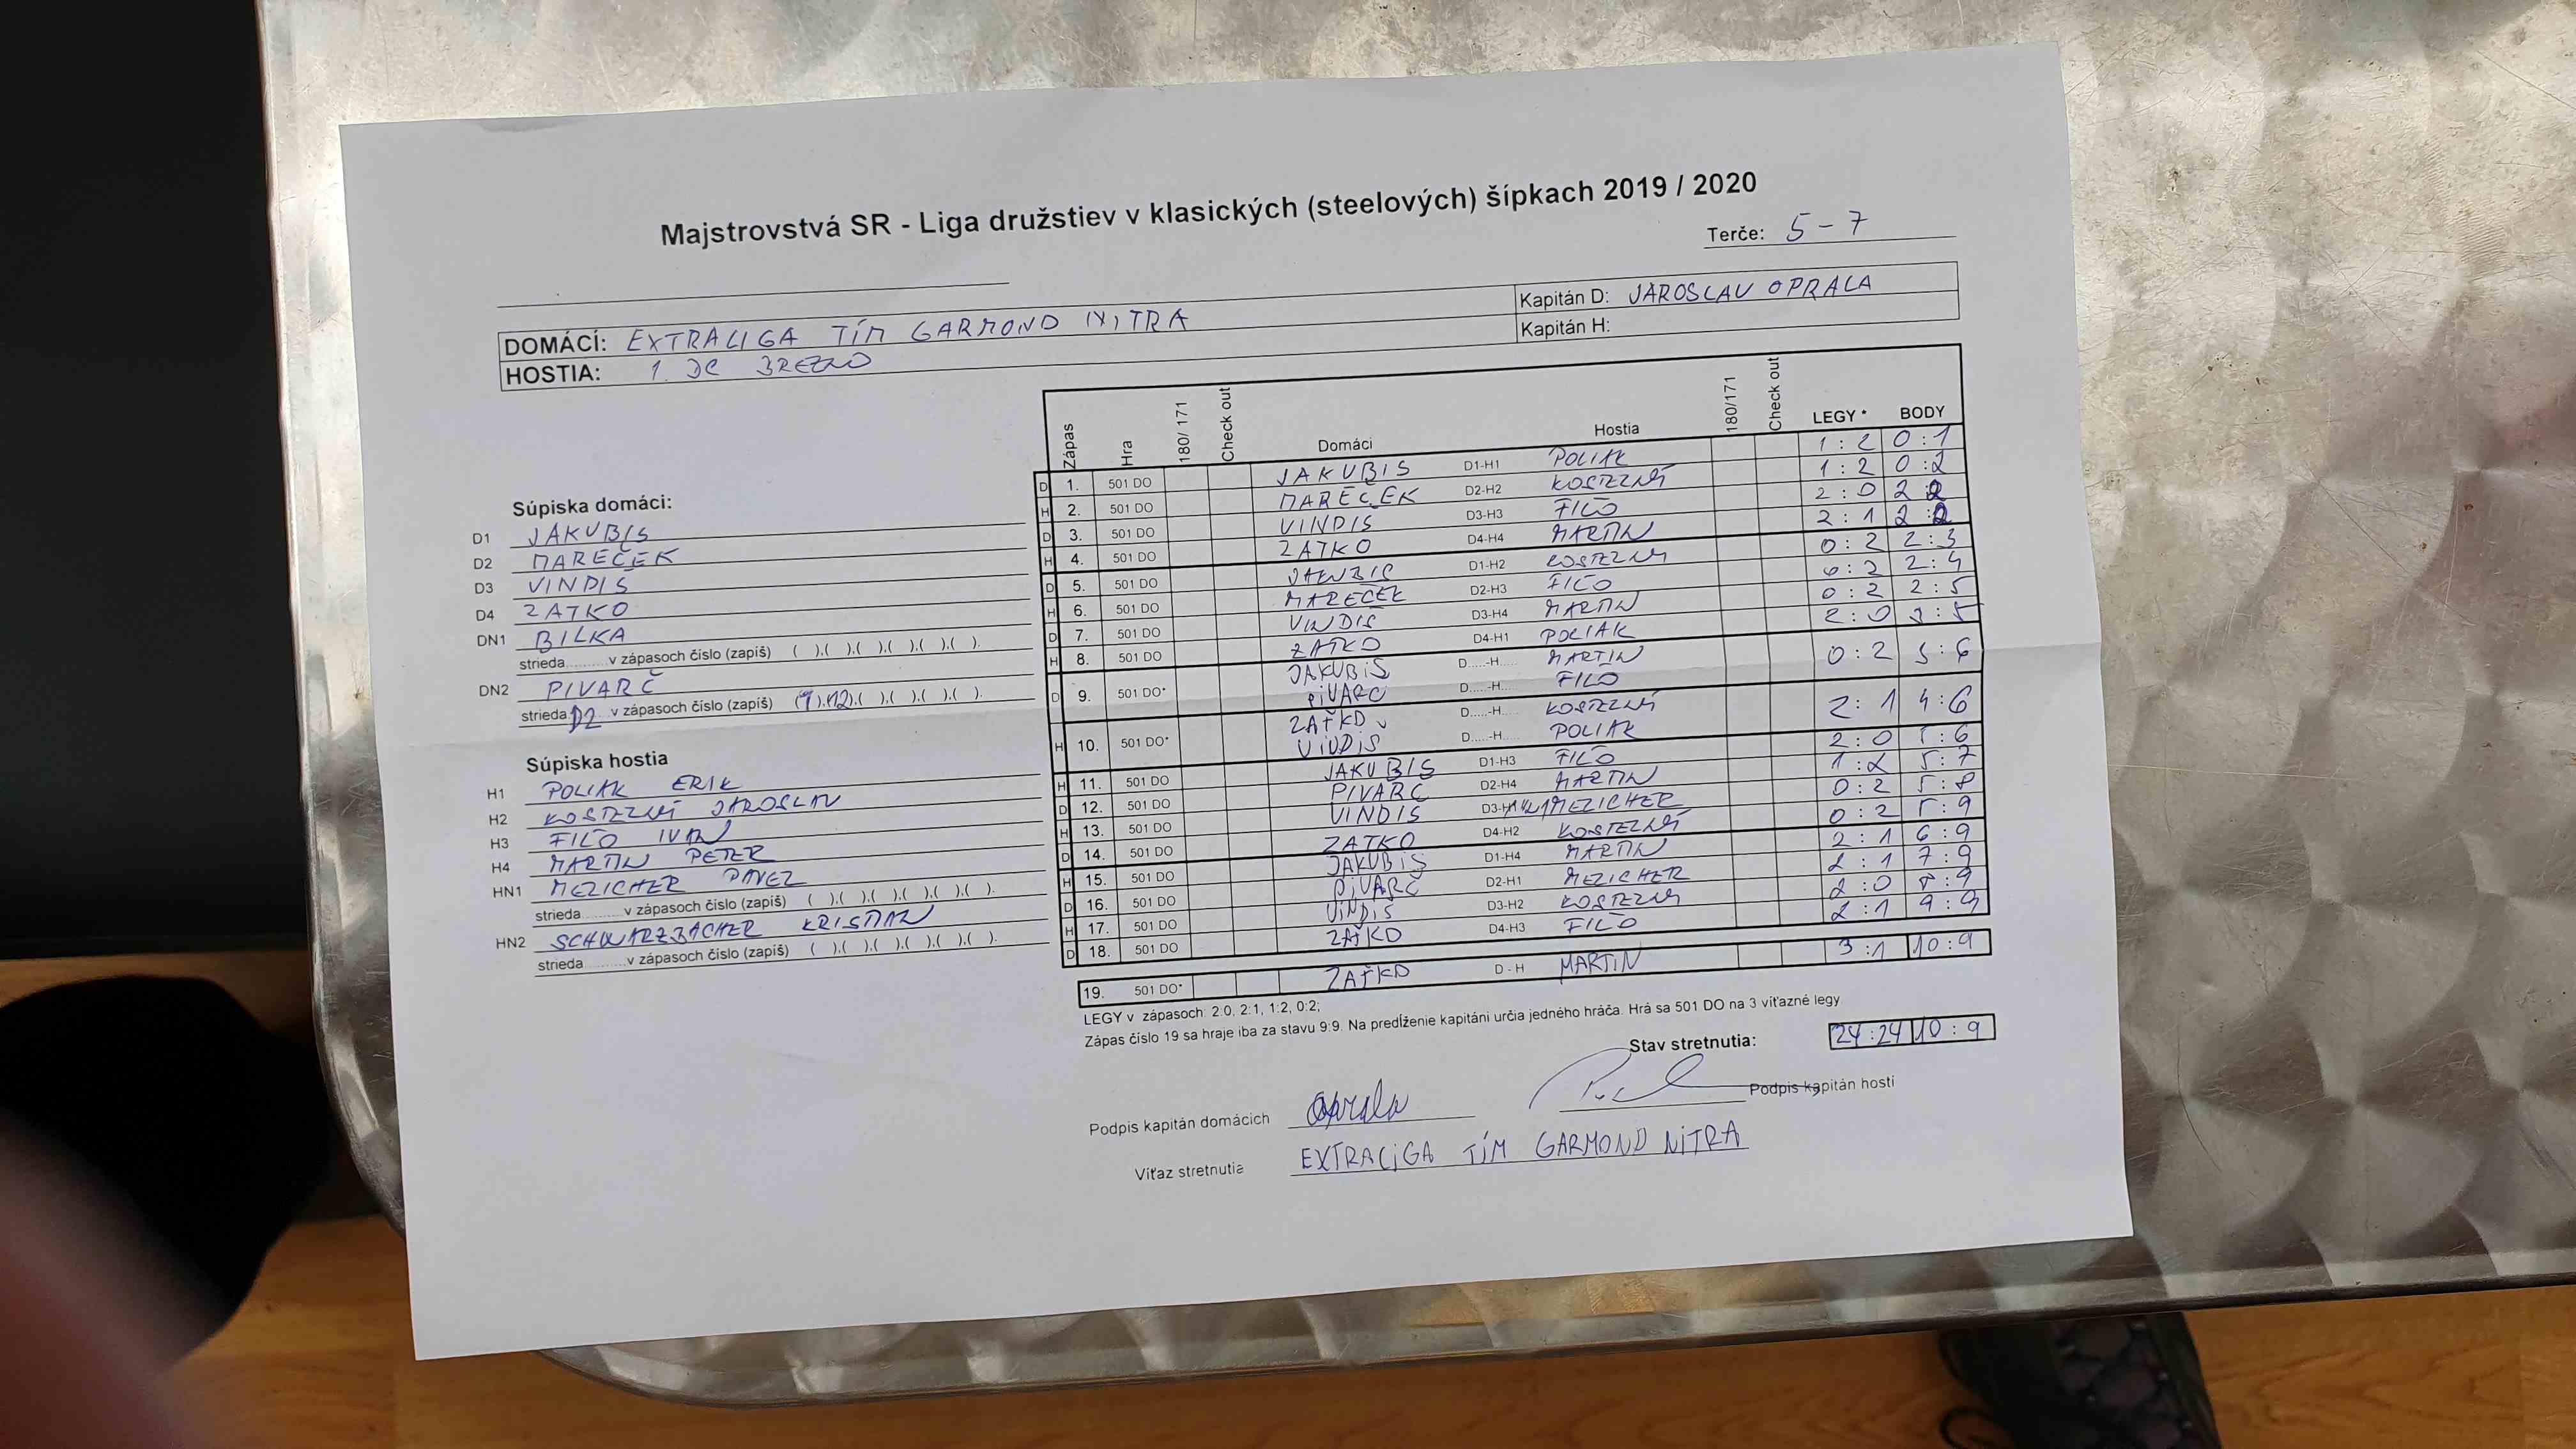 Majstrovstvá SR - Liga družstiev v klasických (steelových) šípkach 2019 / 2020
Terče: 5-7
DOMÁCI: EXTRALIGA TÍM GARMOND NITRA
Kapitán D: JAROSLAV OPRALA
HOSTIA: 1. DC BREZNO
Kapitán H:
Súpiska domáci:
D1 JAKUBIS
D2 MAREČEK
D3 VINDIŠ
D4 ZATKO
DN1 BILKA
strieda..........v zápasoch číslo (zapíš) ( ),( ),( ),( ),( ),( ).
DN2 PIVARČ
strieda D2 v zápasoch číslo (zapíš) (9),(12),( ),( ),( ),( ).
Súpiska hostia
H1 POLIAK ERIK
H2 KOSTEZNÝ JAROSLAV
H3 FILO IVAN
H4 MARTIN PETER
HN1 MEZICHER PAVEL
strieda..........v zápasoch číslo (zapíš) ( ),( ),( ),( ),( ),( ).
HN2 SCHWARZBACHER KRISTIAN
strieda..........v zápasoch číslo (zapíš) ( ),( ),( ),( ),( ),( ).
Zápas Hra 180/ 171 Check out Domáci Hostia 180/171 Check out LEGY * BODY
D 1. 501 DO JAKUBIS D1-H1 POLIAK 1:2 0:1
H 2. 501 DO MAREČEK D2-H2 KOSTEZNÝ 1:2 0:2
D 3. 501 DO VINDIS D3-H3 FILO 2:0
H 4. 501 DO ZATKO D4-H4 MARTIN 2:1 2:2
D 5. 501 DO JAKUBIS D1-H2 KOSTEZNÝ 0:2 2:3
H 6. 501 DO MAREČEK D2-H3 FILO 0:2 2:4
D 7. 501 DO VINDIŠ D3-H4 MARTIN 0:2 2:5
H 8. 501 DO ZATKO D4-H1 POLIAK 2:0 3:5
D 9. 501 DO* JAKUBIS D.....-H..... MARTIN 0:2 3:6
PIVARC D.....-H..... FILO
H 10. 501 DO* ZAŤKO D.....-H..... KOSTEZNÝ 2:1 4:6
VINDIŠ D.....-H..... POLIAK
H 11. 501 DO JAKUBIS D1-H3 FILO 2:0 5:6
D 12. 501 DO PIVARC D2-H4 MARTIN 1:2 5:7
H 13. 501 DO VINDIS MEZICHER 0:2 5:8
D 14. 501 DO ZATKO D4-H2 KOSTEZNÝ 0:2 5:9
H 15. 501 DO JAKUBIS D1-H4 MARTIN 2:1 6:9
D 16. 501 DO PIVARČ D2-H1 MEZICHER 2:1 7:9
H 17. 501 DO VINDIS D3-H2 KOSTEZNÝ 2:0 8:9
D 18. 501 DO ZAŤKO D4-H3 FILO 2:1 9:9
19. 501 DO* ZAŤKO D - H MARTIN 3:1 10:9
LEGY v zápasoch: 2:0, 2:1, 1:2, 0:2;
Zápas číslo 19 sa hraje iba za stavu 9:9. Na predĺženie kapitáni určia jedného hráča. Hrá sa 501 DO na 3 víťazné legy
Stav stretnutia: 24:24 10:9
Podpis kapitán domácich Oprala
Podpis kapitán hostí
Víťaz stretnutia EXTRALIGA TÍM GARMOND NITRA